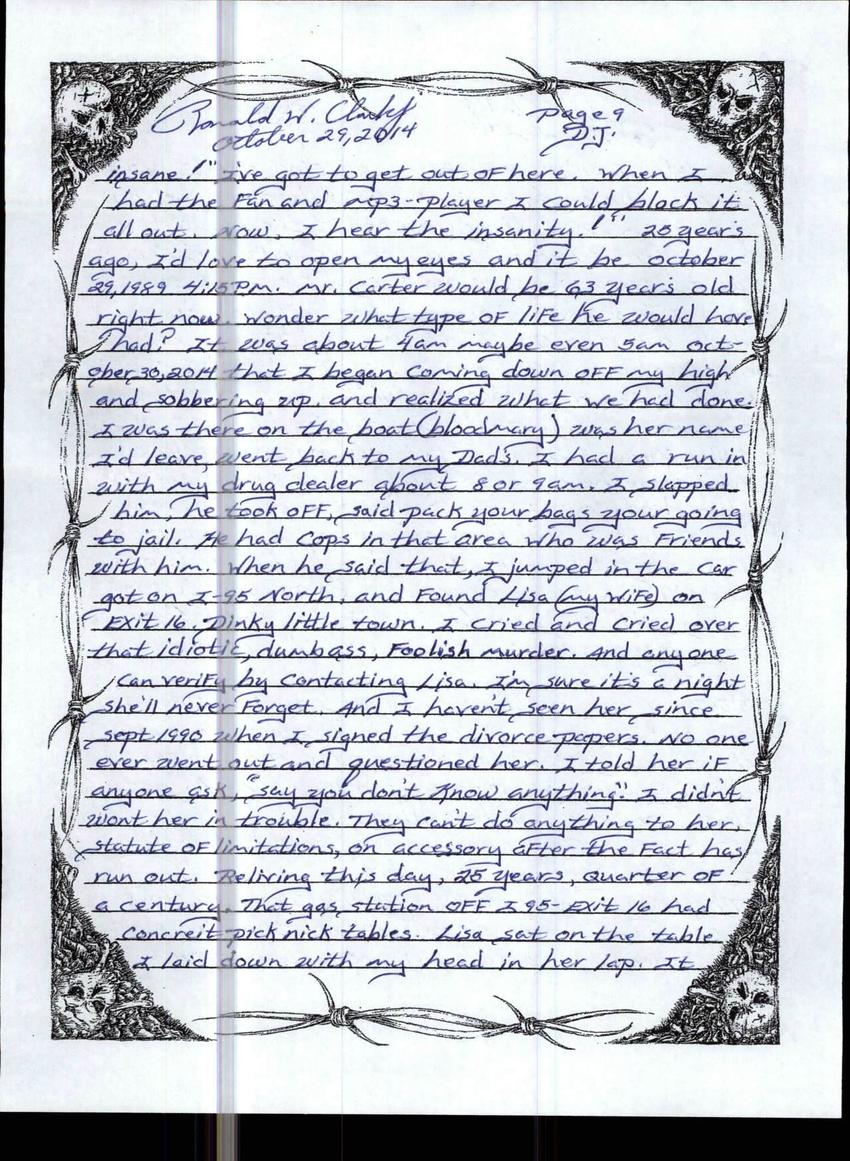 Ronald W. Clark Jr
October 29, 2014
Page 9
D.J.
insane!" I've got to get out of here. When I
had the Fan and mp3-player I could block it
all out. Now, I hear the insanity!" 25 years
ago, I'd love to open my eyes and it be October
29, 1989 4:15 P.M. Mr. Carter would be 63 years old
right now. Wonder what type of life he would have
had? It was about 4am maybe even 5am Oct-
ober, 30, 2014 that I began coming down off my high
and sobbering up, and realized what we had done.
I was there on the boat (bloodmary) was her name
I'd leave, went back to my Dad's. I had a run in
with my drug dealer about 8 or 9am. I slapped
him, he took off, said pack your bags your going
to jail. He had cops in that area who was friends
with him. When he said that, I jumped in the car
got on I-95 North, and Found Lisa (my wife) on
Exit 16. Dinky little town. I cried and cried over
that idiotic, dumbass, Foolish murder. And anyone
can verify by contacting Lisa. I'm sure it's a night
she'll never Forget. And I haven't seen her since
sept 1990 when I signed the divorce papers. No one
ever went out and questioned her. I told her if
anyone ask, "say you don't know anything." I didn't
wont her in trouble. They can't do anything to her,
statute of limitations, on accessory after the Fact has
run out. Reliving this day, 25 years, quarter of
a century. That gas station off I 95-Exit 16 had
concreit pick nick tables. Lisa sat on the table
I laid down with my head in her lap. It